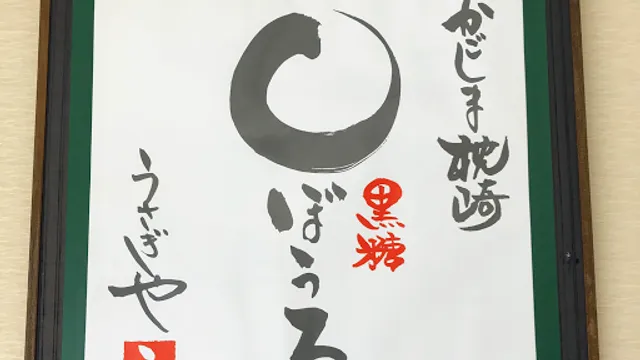 かごしま枕崎
黒糖
ぼうろ
うさぎや
う